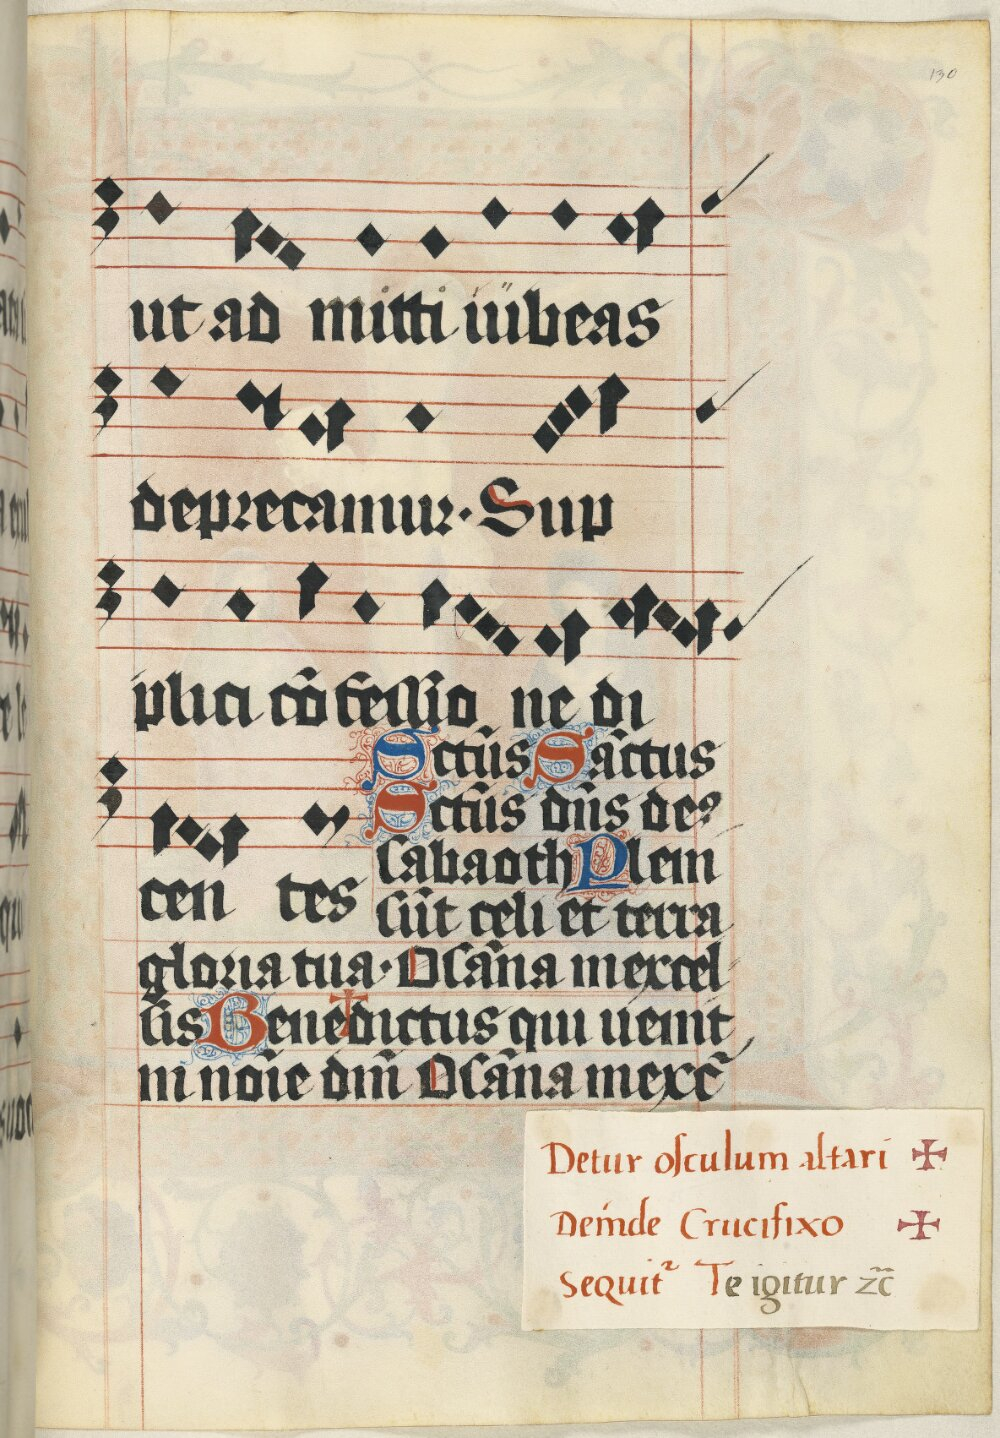 130
ut ad mitti iubeas
deprecamur. Sup
plici cōfessio ne di
Sctūs Sāctus
Sctūs dn̄s de?
cen tes
sabaoth Plem
sūt celi et terra
gloria tua. Osāna in excel
sis Bene✝dictus qui uenit
in noīe dn̄i Osāna in exc̄
Detur osculum altari ✠
Deinde Crucifixo ✠
Sequit᷑ Te igitur ⁊c̄